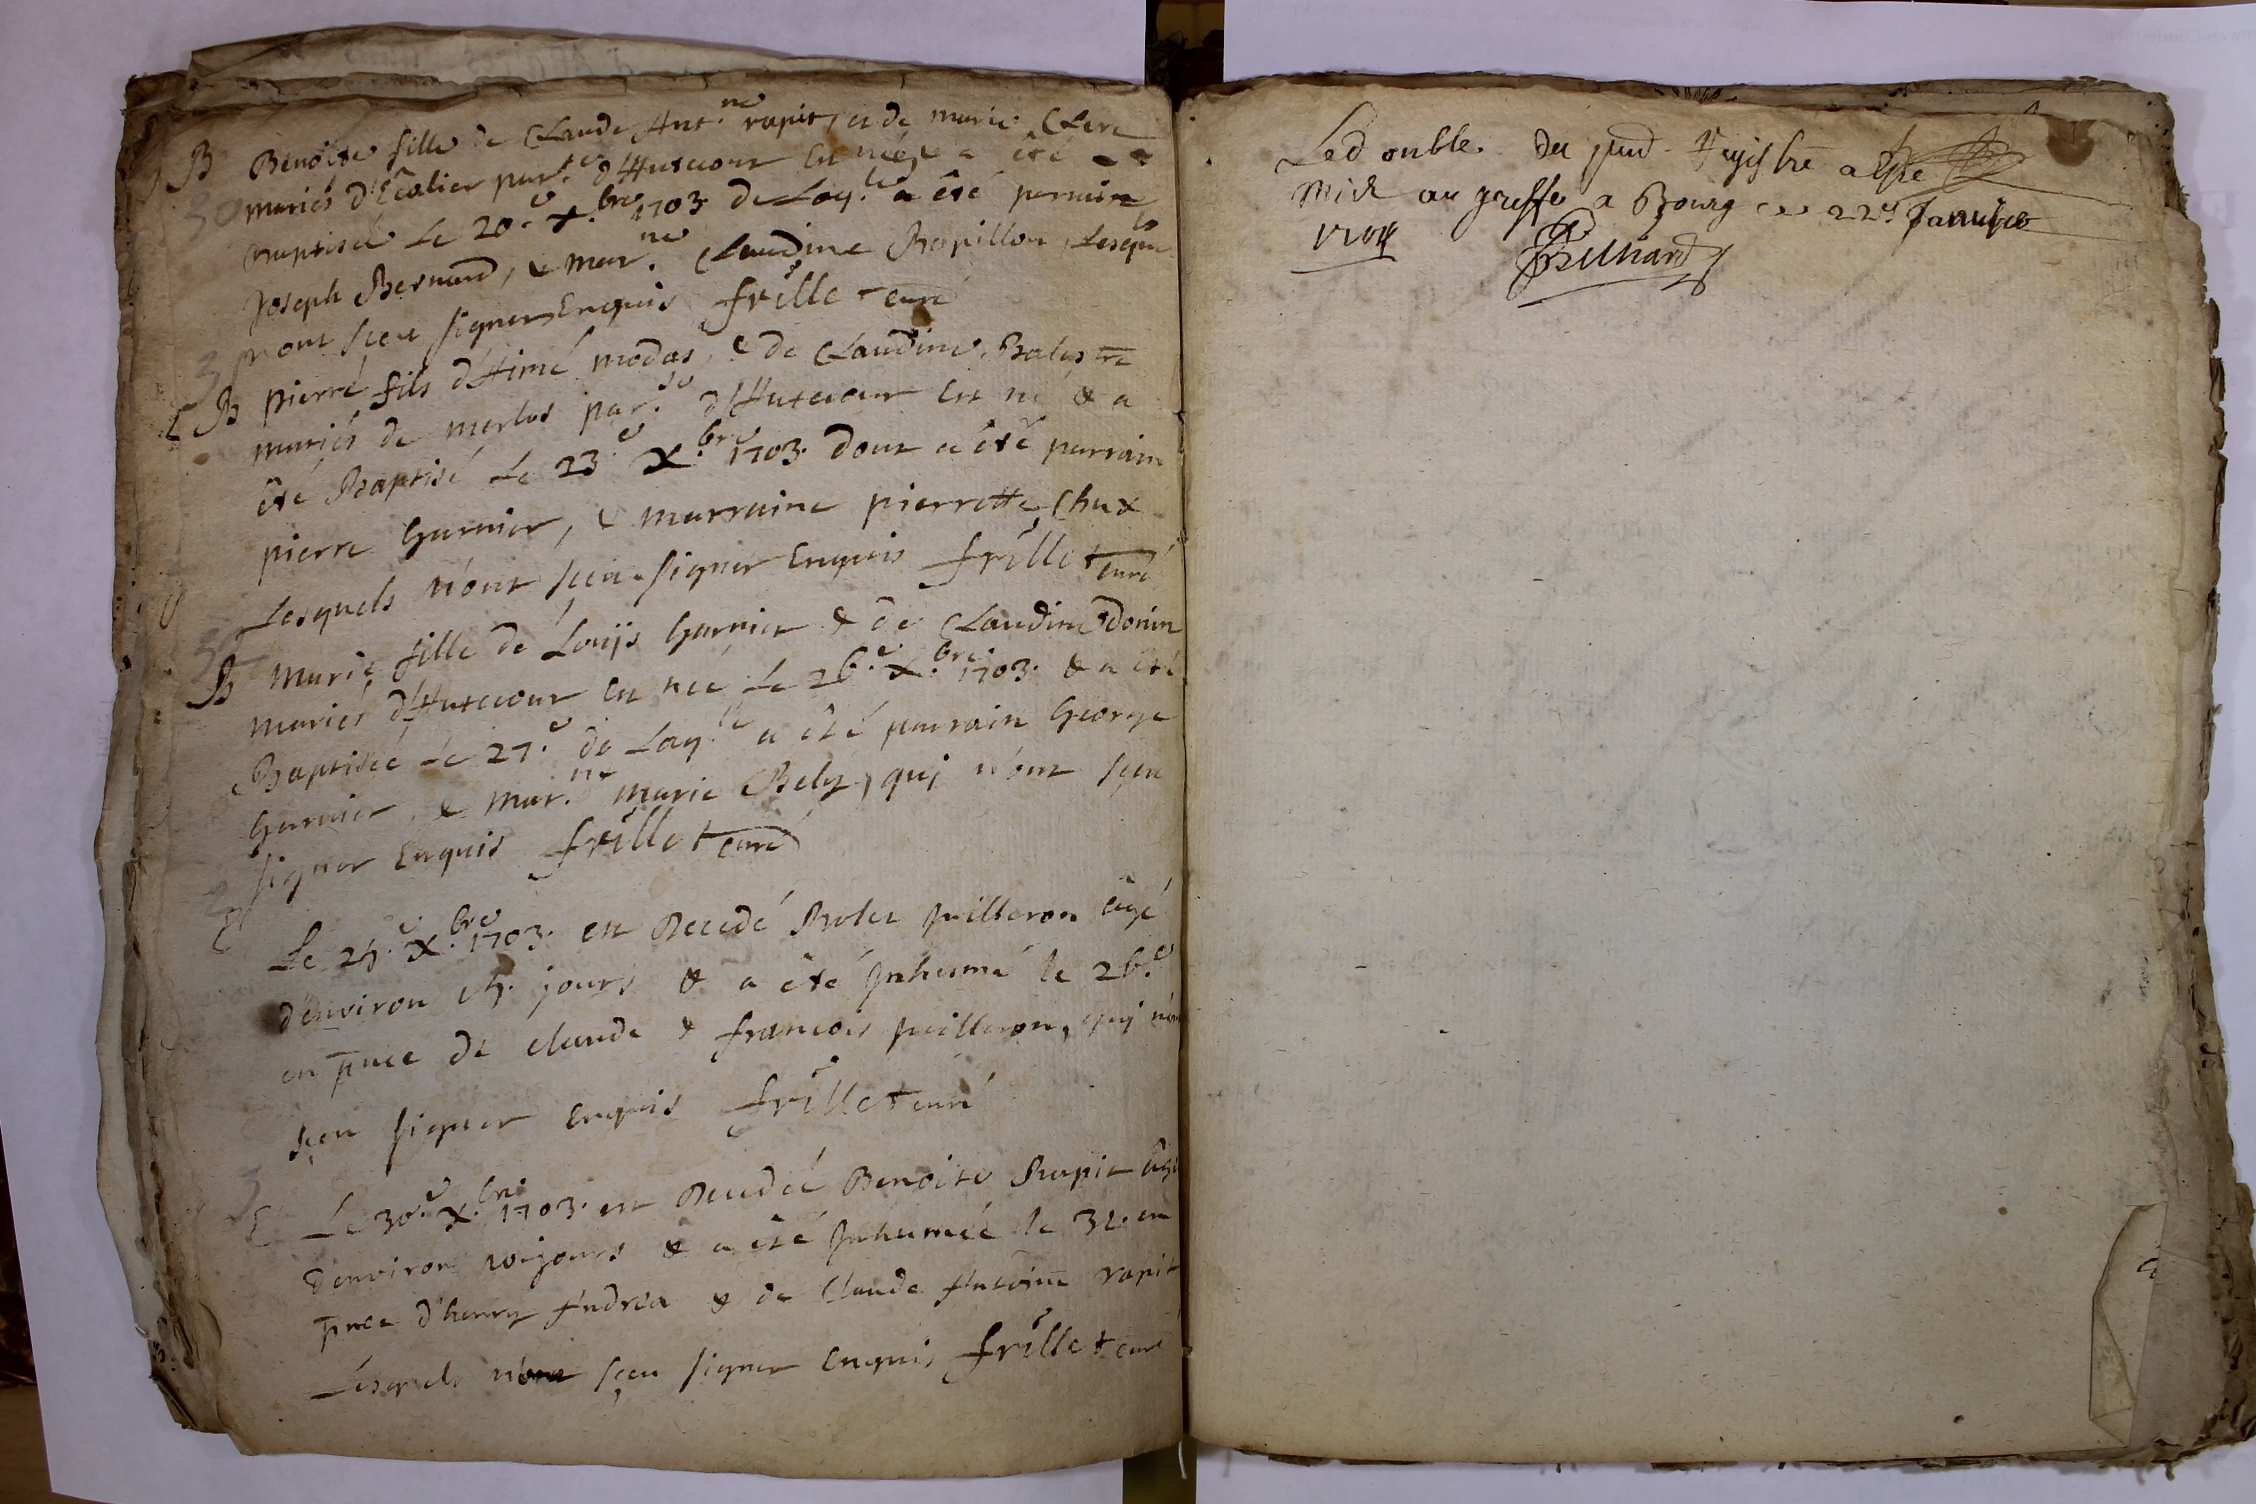 B Benoite fille de Claude Ant.ne rapit, et de marie Clerc
mariés d'Ecolier par.se d'Hutecour est née, & a été
Baptisée le 20.e X.bre 1703. de Laq.le a été parrain
Joseph Bernard, & mar.ne Claudine Papillon Lesquels
n'ont sceu signer Enquis frillet curé
B pierre fils d'Aimé modas, & de Claudine Balestre
mariés de merlos par.se d'Hutecour est né & a
été Baptisé le 23.e X.bre 1703. dont a été parrain
pierre Garnier, & marraine pierrette Chux
Lesquels n'ont sceu signer Enquis frillet curé
B Marie fille de Louijs Garnier & de Claudine donin
mariés d'Hutecour est née le 26.e X.bre 1703. & a été
Baptisée le 27.e de Laq.le a été parrain George
Garnier, & mar.ne marie Bely, qui n'ont sceu
signer Enquis frillet curé
Le 25.e X.bre 1703. est Decedé Rolet juilleron âgé
d'environ 15. jours & a été Inhumé le 26.e
en pnce de claude & francois juilleron, qui n'ont
sceu signer Enquis frillet curé
Le 30.e X.bre 1703. est Decedée Benoite Rapit âgée
d'environ 10 jours & a été Inhumée le 31. en
pnce d'henry Andrea & de Claude Antoine rapit
Lesquels n'ont sceu signer Enquis frillet curé
Le double du pnt Registre a esté
mis au greffe a Bourg ce 22e Janvier
1704